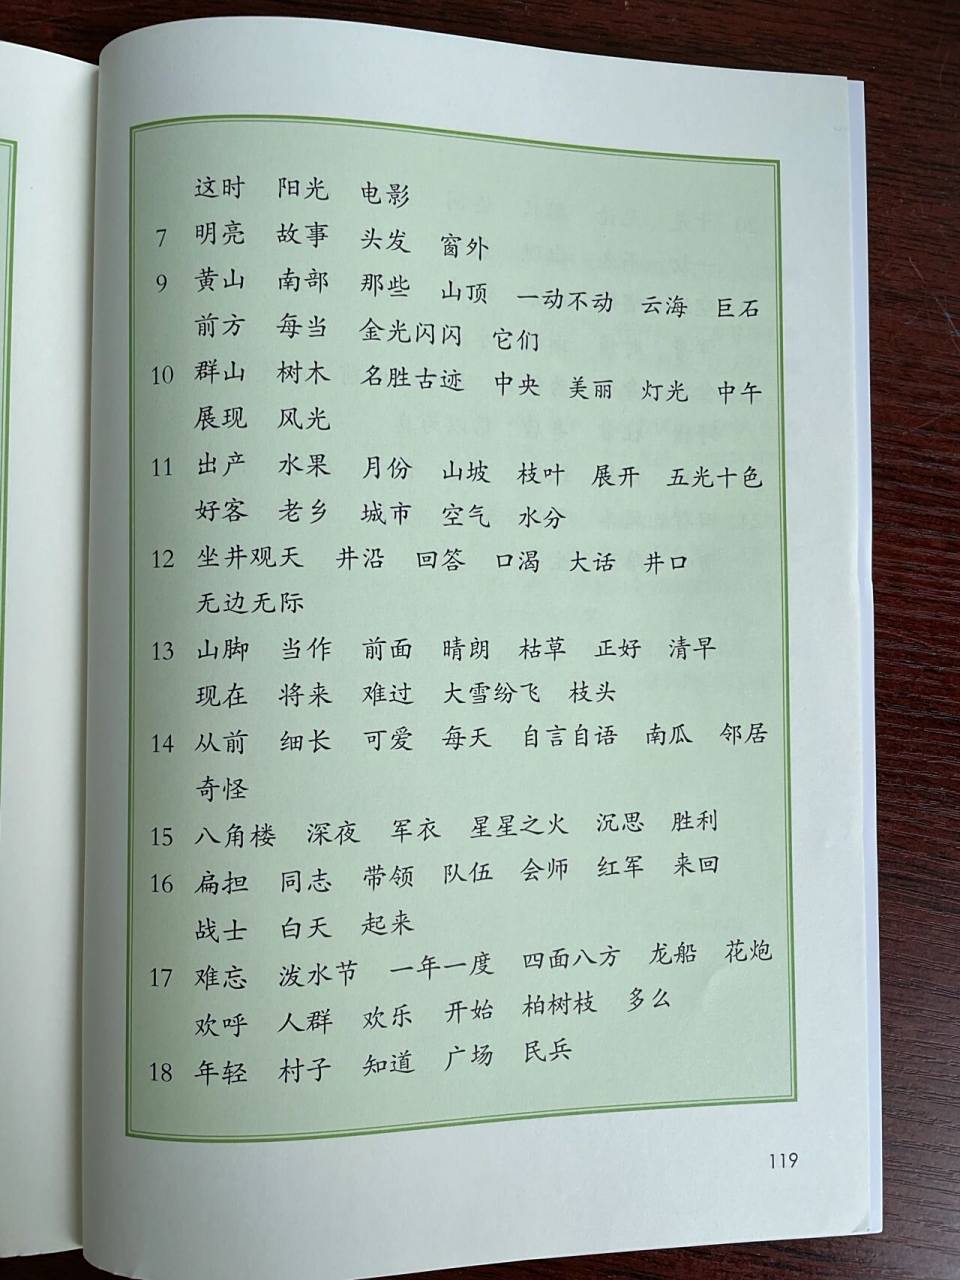 这时 阳光 电影
7 明亮 故事 头发 窗外
9 黄山 南部 那些 山顶 一动不动 云海 巨石
前方 每当 金光闪闪 它们
10 群山 树木 名胜古迹 中央 美丽 灯光 中午
展现 风光
11 出产 水果 月份 山坡 枝叶 展开 五光十色
好客 老乡 城市 空气 水分
12 坐井观天 井沿 回答 口渴 大话 井口
无边无际
13 山脚 当作 前面 晴朗 枯草 正好 清早
现在 将来 难过 大雪纷飞 枝头
14 从前 细长 可爱 每天 自言自语 南瓜 邻居
奇怪
15 八角楼 深夜 军衣 星星之火 沉思 胜利
16 扁担 同志 带领 队伍 会师 红军 来回
战士 白天 起来
17 难忘 泼水节 一年一度 四面八方 龙船 花炮
欢呼 人群 欢乐 开始 柏树枝 多么
18 年轻 村子 知道 广场 民兵
119